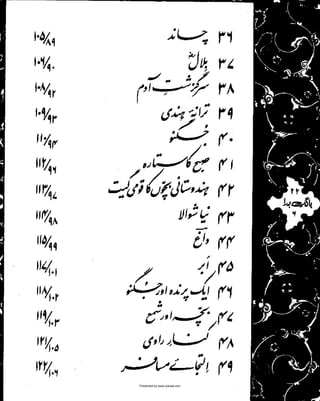 ۳۶ چاند ۱۰۵/۸۹
۳۷ بلالؓ ۱۰۶/۹۰
۳۸ سرگزشتِ آدم ۱۰۸/۹۲
۳۹ ترانۂ ہندی ۱۰۹/۹۳
۴۰ جگنو ۱۱۰/۹۴
۴۱ صبح کا ستارہ ۱۱۲/۹۶
۴۲ ہندوستانی بچوں کا قومی گیت ۱۱۳/۹۷
۴۳ نیا شوالا ۱۱۴/۹۸
۴۴ داغ ۱۱۵/۹۹
۴۵ ابر ۱۱۷/۱۰۱
۴۶ ایک پرندہ اور جگنو ۱۱۸/۱۰۲
۴۷ بچہ اور شمع ۱۱۹/۱۰۳
۴۸ کنارِ راوی ۱۲۱/۱۰۵
۴۹ التجائے مسافر ۱۲۲/۱۰۶
۲۲
بانگِ درا
۶
Presented by www.ziaraat.com